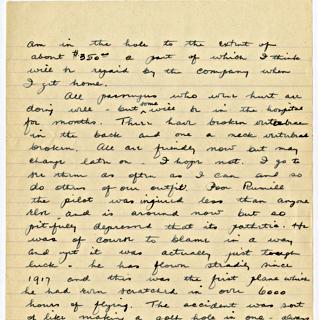 am in the hole to the extent of
about $350⁰⁰ a part of which I think
will be repaid by the company when
I get home.
All passengers who were hurt are
doing well - but some will be in the hospital
for months. Three have broken vertebrae
in the back and one a neck vertebrae
broken. All are friendly now but may
change later on. I hope not. I go to
see them as often as I can and so
do others of our outfit. Poor
the pilot was injured less than anyone
else and is around now but so
pitifully depressed that its pathetic. He
was of course to blame in a way
and yet it was actually just tough
luck. he has flown steadily since
1917 and this was the first plane which
he had even scratched in over 6000
hours of flying. The accident was sort
of like making a golf hole in one - always